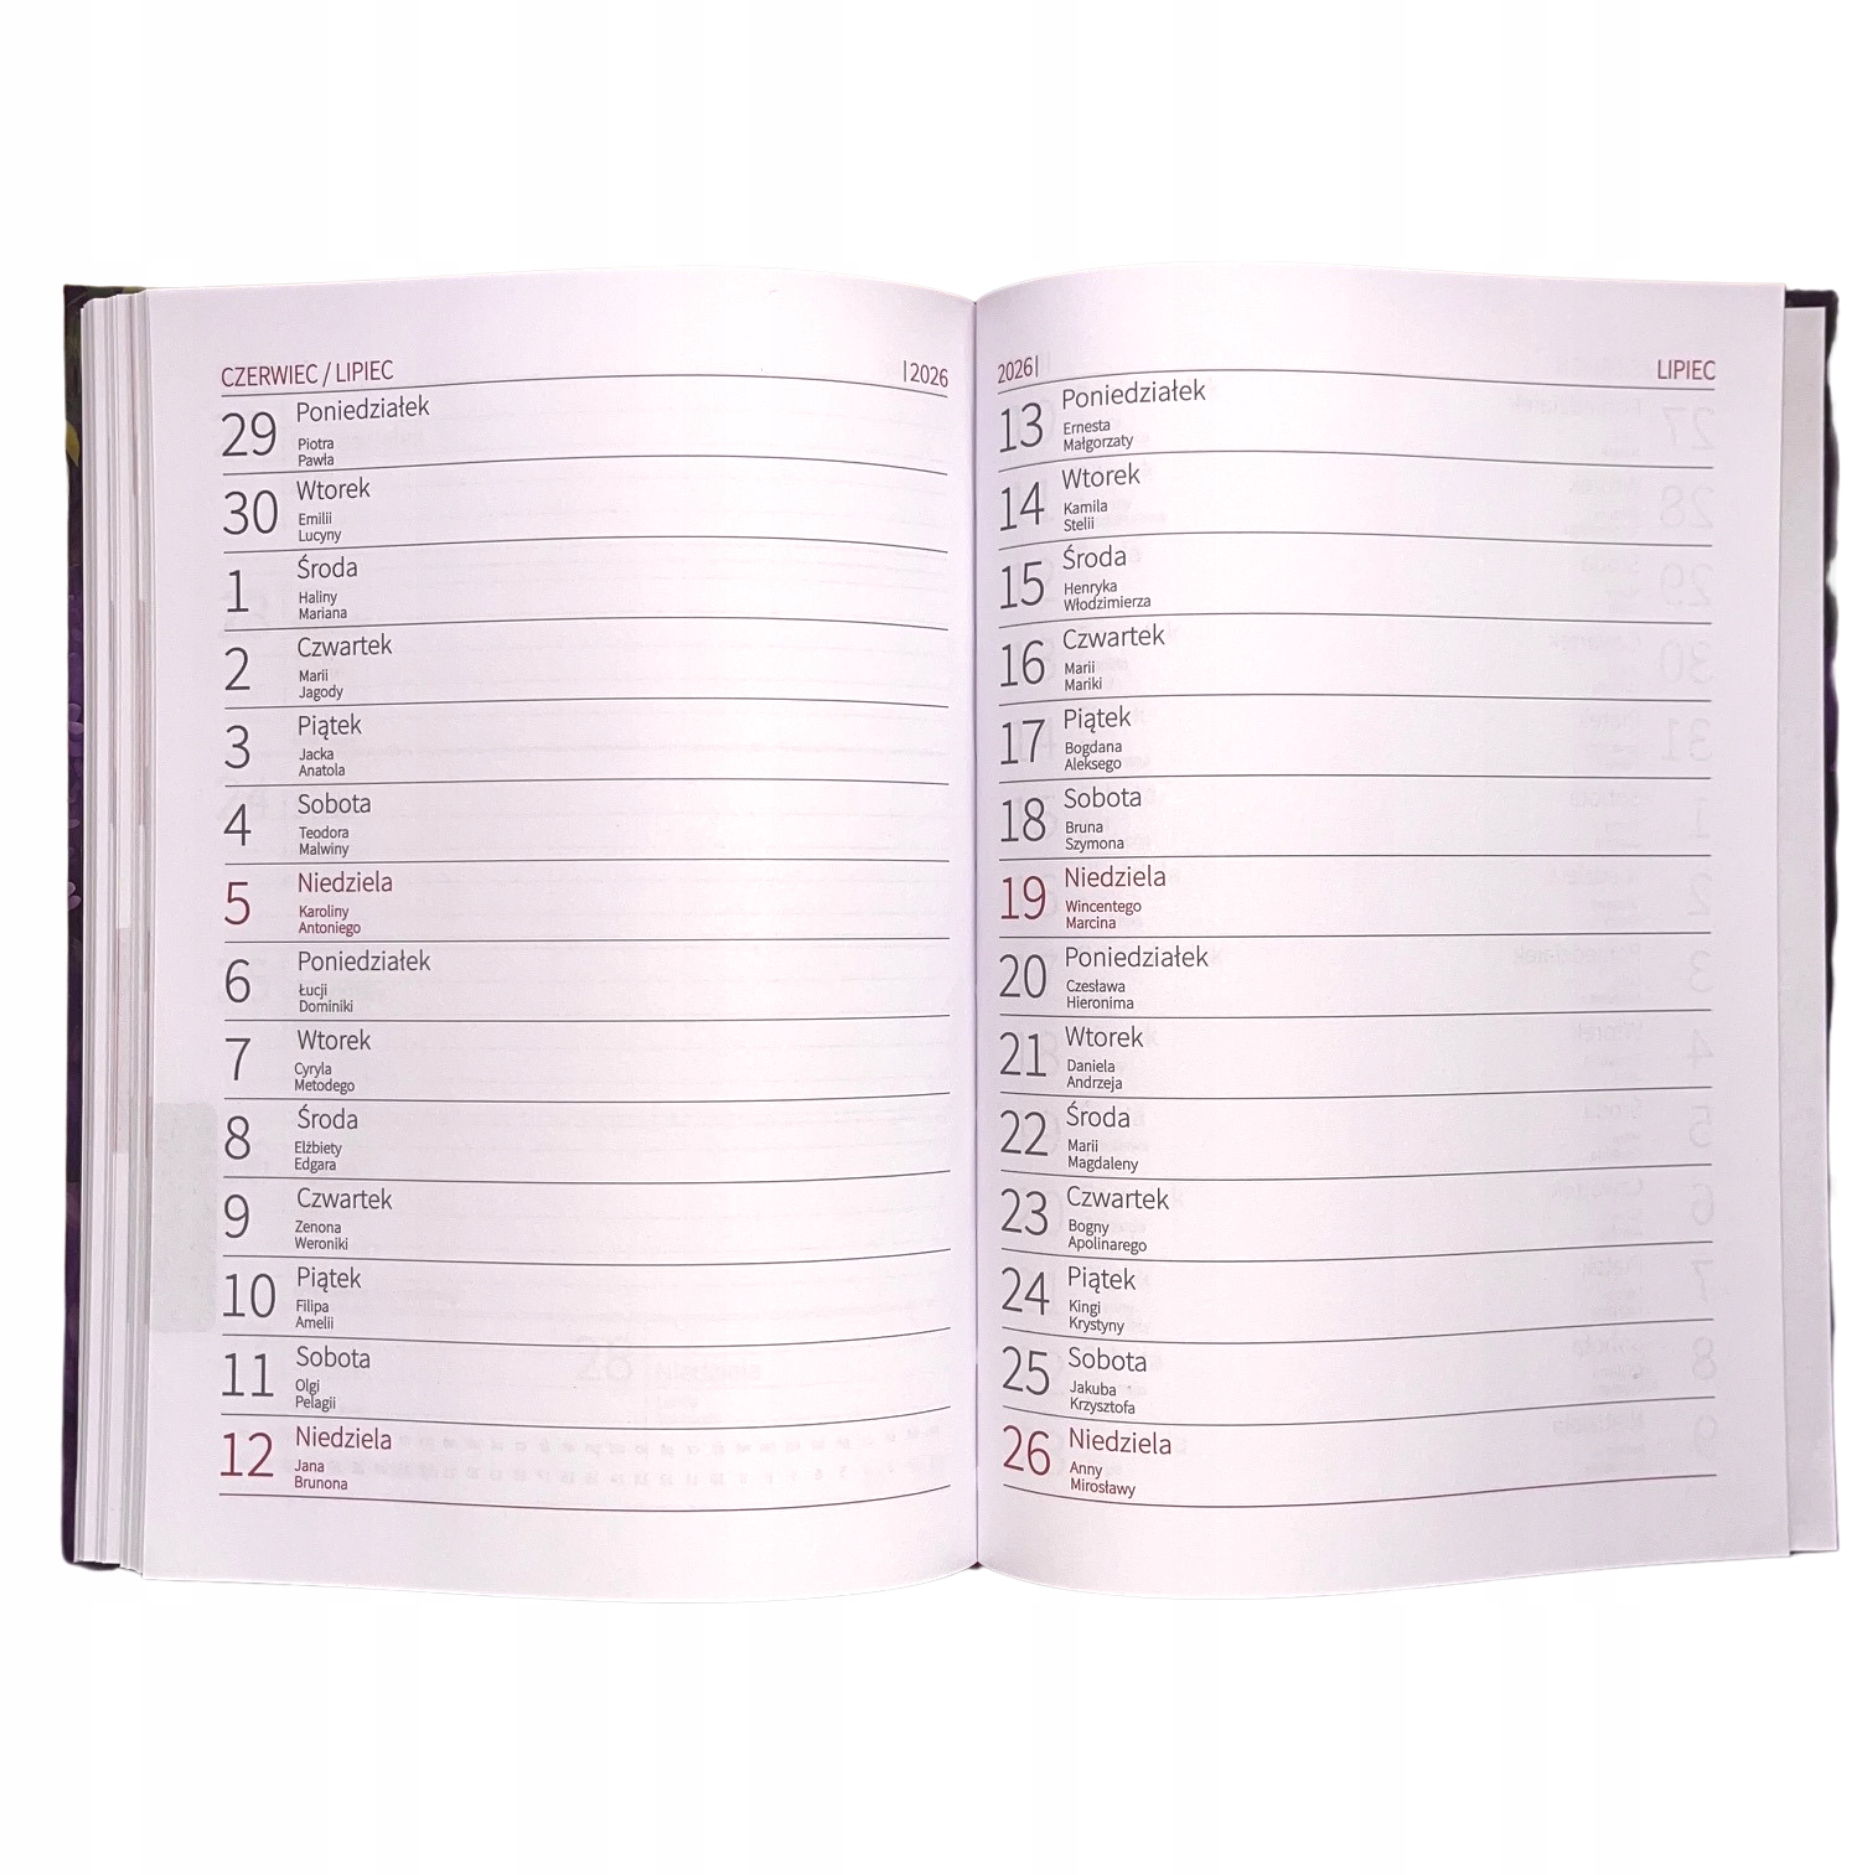 CZERWIEC / LIPIEC |2026
29 Poniedziałek
Piotra
Pawła
30 Wtorek
Emilii
Lucyny
1 Środa
Haliny
Mariana
2 Czwartek
Marii
Jagody
3 Piątek
Jacka
Anatola
4 Sobota
Teodora
Malwiny
5 Niedziela
Karoliny
Antoniego
6 Poniedziałek
Łucji
Dominiki
7 Wtorek
Cyryla
Metodego
8 Środa
Elżbiety
Edgara
9 Czwartek
Zenona
Weroniki
10 Piątek
Filipa
Amelii
11 Sobota
Olgi
Pelagii
12 Niedziela
Jana
Brunona
2026| LIPIEC
13 Poniedziałek
Ernesta
Małgorzaty
14 Wtorek
Kamila
Stelii
15 Środa
Henryka
Włodzimierza
16 Czwartek
Marii
Mariki
17 Piątek
Bogdana
Aleksego
18 Sobota
Bruna
Szymona
19 Niedziela
Wincentego
Marcina
20 Poniedziałek
Czesława
Hieronima
21 Wtorek
Daniela
Andrzeja
22 Środa
Marii
Magdaleny
23 Czwartek
Bogny
Apolinarego
24 Piątek
Kingi
Krystyny
25 Sobota
Jakuba
Krzysztofa
26 Niedziela
Anny
Mirosławy